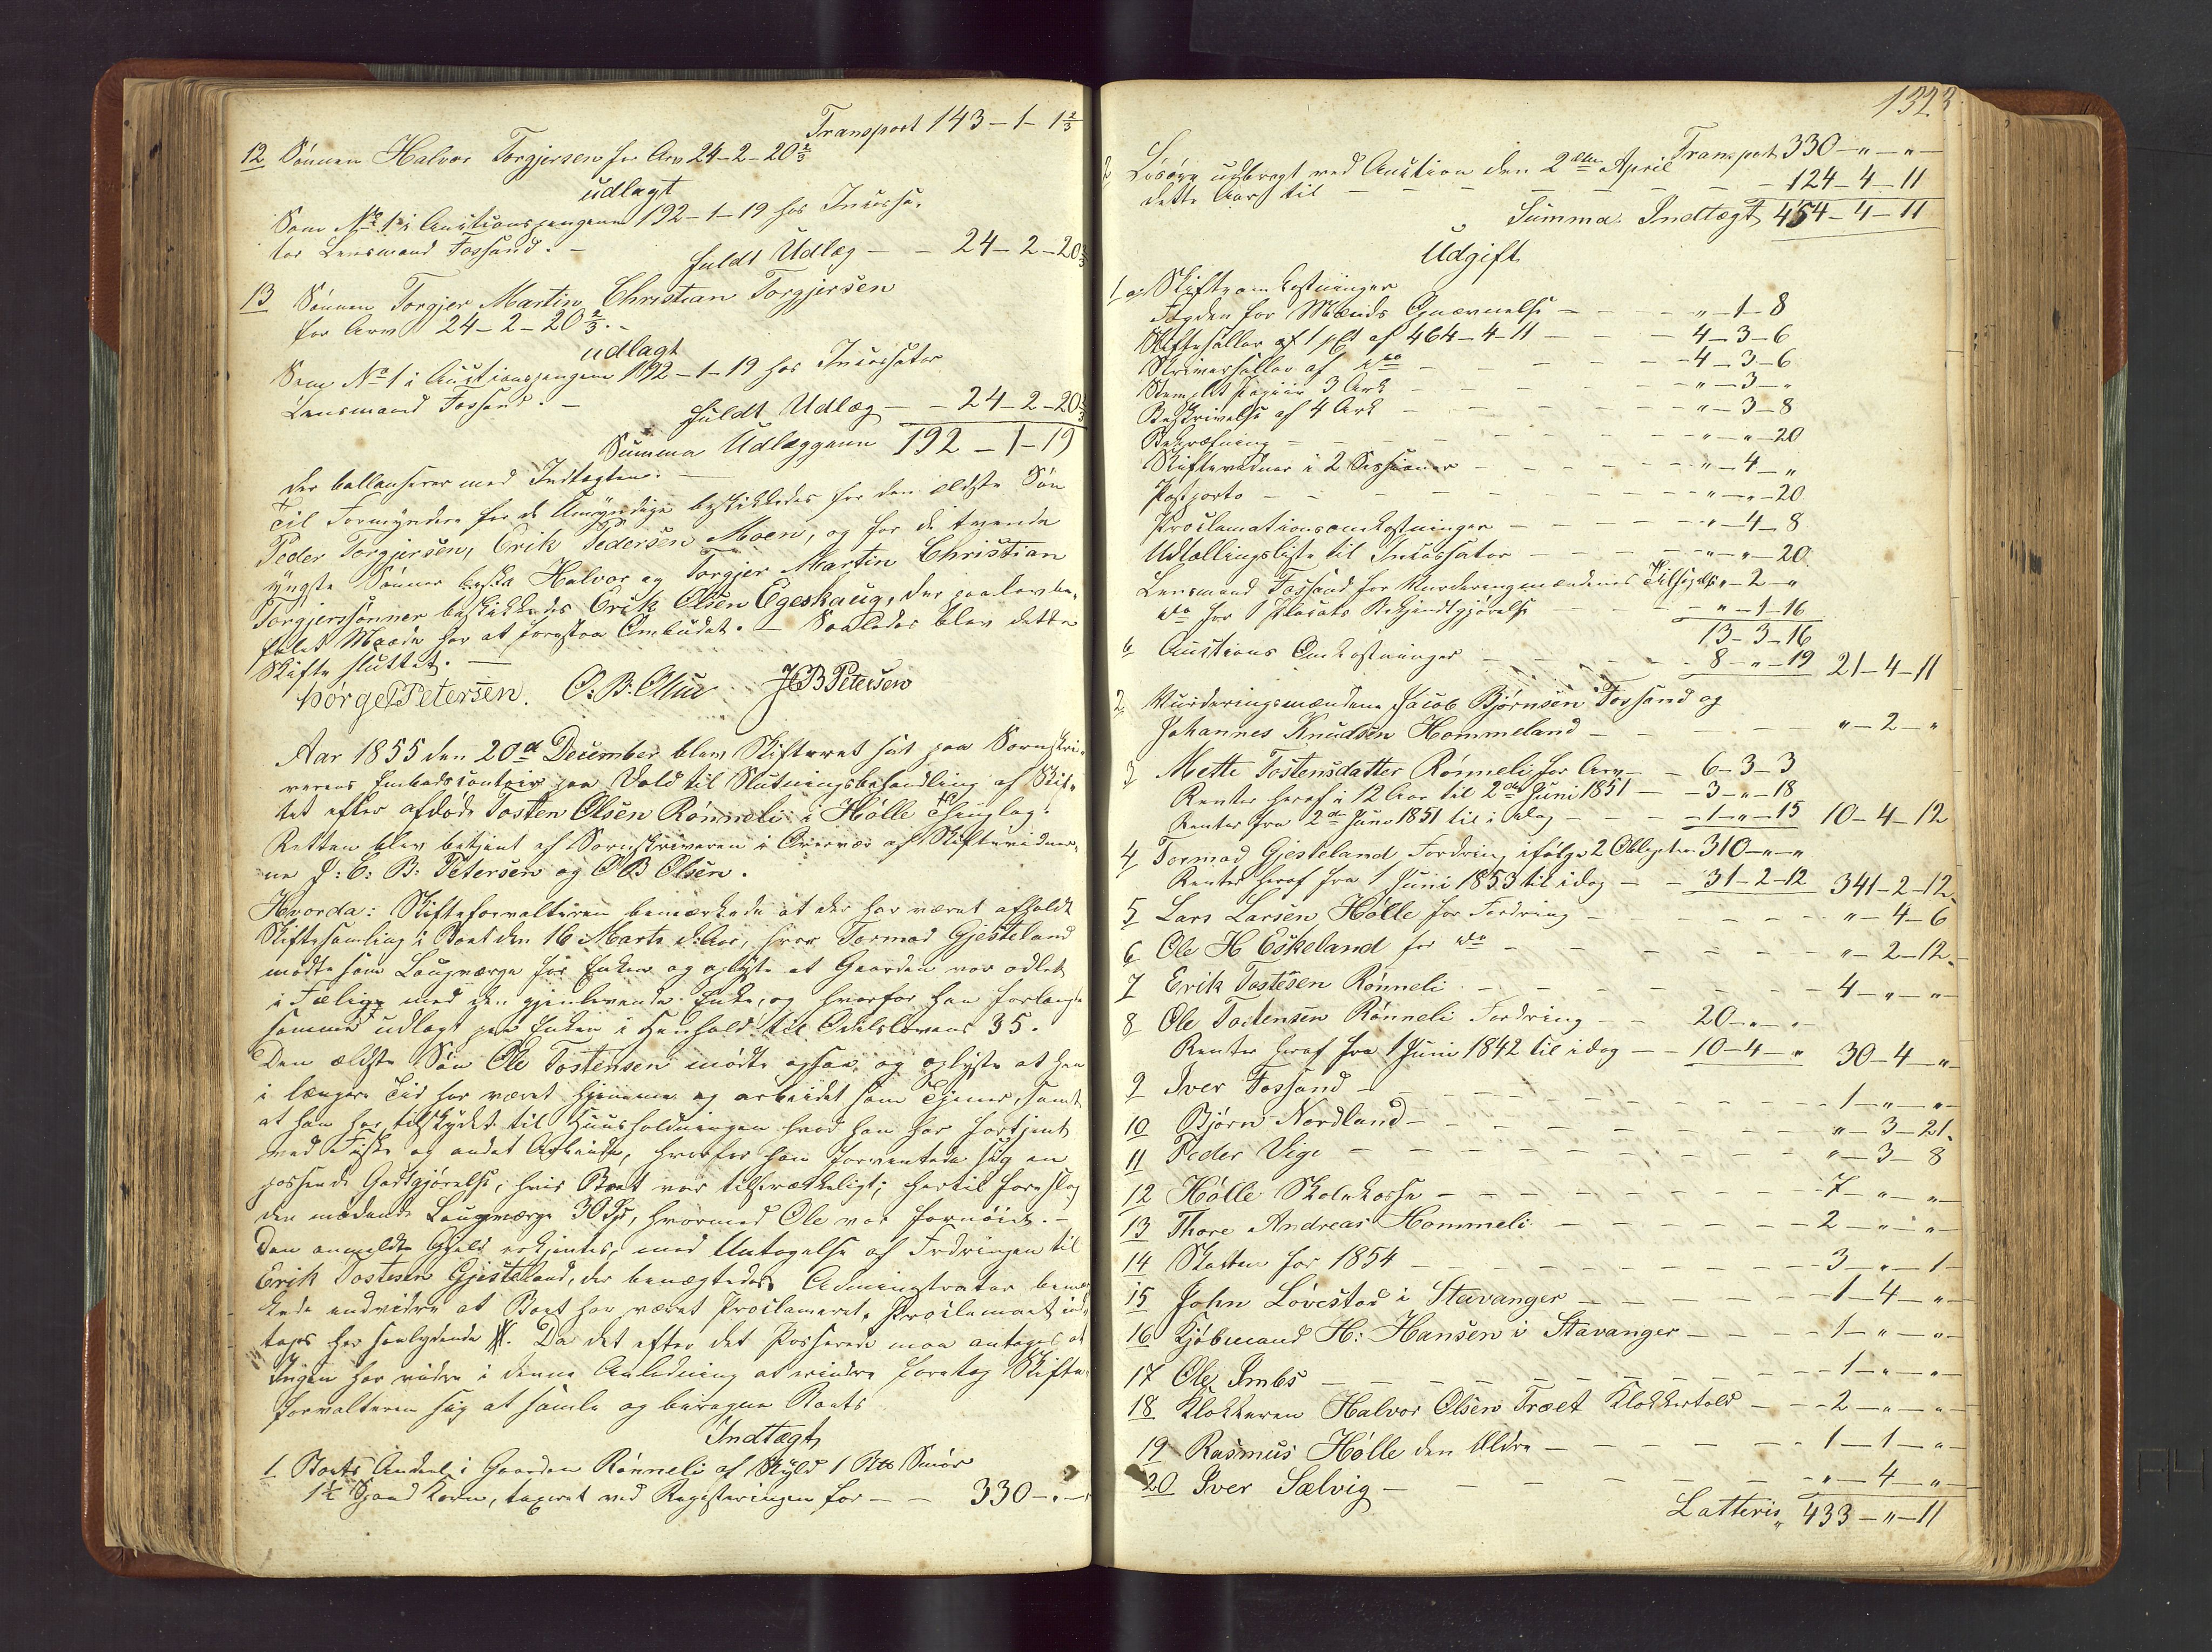 Transport 143-1-1 2/3
12 Sønnen Halvor Torgjersen for Arv 24-2-20 2/3
udlagt
Som No 1 i Auctionspengene 192-1-19 hos Incassa-
tor Lensmand Fossand. -
fuldt Udlæg - - 24-2-20 2/3
13 Sønnen Torgjer Martin Christian Torgjersen
for Arv 24-2-20 2/3. -
udlagt
Som No 1 i Auctionspengene 192-1-19 hos Incassator
Lensmand Fossand. -
fuldt Udlæg - - 24-2-20 2/3
Summa Udlæggene 192-1-19
der ballancerer med Indtægten. -
Til Formyndere for de Umyndige beskikkedes for den ældste Søn
Peder Torgjersen, Erik Pedersen Moen, og for de tvende
yngste Sønner Halvor og Torgjer Martin Christian
Torgjerssønner beskikkedes Erik Olsen Egeskaug, der paa lovbe-
falet Maade har at forestaa Ombudet. - Saaledes blev dette
Skifte sluttet. -
Børge Petersen. O. B. Olsen JCB Petersen
Aar 1855 den 20de December blev Skifteret sat paa Sorenskri-
verens Embedscontoir paa Vold til Slutningsbehandling af Skif-
tet efter afdøde Tosten Olsen Rønneli i Hølle Thinglag.
Retten blev betjent af Sorenskriveren i Overvær af Skiftevidner-
ne J: C: B: Petersen og O B Olsen.
Hvorda: Skifteforvalteren bemærkede at der har været afholdt
Skiftesamling i Boet den 16 Marts d: Aar, hvor Tormod Gjesteland
mødte som Laugværge for Enken og oplyste at Gaarden var odlet
i Fælig med den gjenlevende Enke, og hvorfor han forlangte
samme udlagt paa Enken i Henhold til Odelslovens 35.
Den ældste Søn Ole Tostensen mødte ogsaa, og oplyste at han
i længere Tid har været hjemme og arbeidet som Tjener, samt
at han har tilskudt til Huusholdningen hvad han har fortjent
ved Fiske og andet Arbeide, hvorfor han forventede sig en
passende Godtgjørelse, hvis Boet var tilstrækkeligt; hertil foreslog
den mødende Laugværge 30 Spd, hvormed Ole var fornøiet. -
Den anmeldte Gjeld erkjendtes, med Undtagelse af Fordringen til
Erik Tostesen Gjesteland, der benægtedes. Administrator bemær-
kede endvidere at Boet har været Proclameret, Proclamaet ind-
tages her saalydende #. Da det efter det Passerede maa antages at
Ingen har videre i denne Anledning at erindre foretog Skifte-
forvalteren sig at samle og beregne Boets
Indtægt
1 Boets Andeel i Gaarden Rønneli af Skyld 1 Smør
1 1/2 Spand Korn, taxeret ved Registreringen for - - 330-"-"
132
Transport 330-"-"-
2 Løsøre udbragt ved Auction den 2den April
dette Aar til - - - 124-4-11
Summa Indtægt 454-4-11
Udgift
1 a Skifteomkostninger
Fogden for Mænds Opnævnelse - - - "-1-8
Skiftesallær af 1 pCt af 464-4-11 - - - 4-3-6
Skriversallær af do - - - 4-3-6
Stemplet Papiir 3 Ark - - - "-3-"
Beskrivelse af 4 Ark - - - "-3-8
Bekræftning - - - "-"-20
Skiftevidner i 2 Sessioner - - - "-4-"
Postporto - - - "-"-20
Proclamationsomkostninger - - - "-4-8
Udtællingsliste til Incassator - - - "-"-20
Lensmand Fossand for Vurderingsmændenes Tilsigelse "-2-"
do for 1 Placats Bekjendtgjørelse - - - "-1-16
13-3-16
b Auctions Omkostninger - - - 8-"-19 21-4-11
2 Vurderingsmændene Jacob Bjørnsen Fossand og
Johannes Knudsen Hommeland - - - "-2-"
3 Mette Tostensdatter Rønneli for Arv - - 6-3-3
Renter heraf i 12 Aar til 2de Juni 1851 - - 3-"-18
Renter fra 2de Juni 1851 til i dag - - - 1-"-15 10-4-12
4 Tormod Gjesteland Fordring ifølge 2 Obligationer 310-"-"
Renter heraf fra 1 Juni 1853 til idag - - 31-2-12 341-2-12
5 Lars Larsen Hølle for Fordring - - - "-4-6
6 Ole H Eskeland for do - - - "-2-12
7 Erik Tostesen Rønneli - - - 4-"-"
8 Ole Tostensen Rønneli Fordring - - 20-"-"
Renter heraf fra 1 Juni 1842 til idag - - 10-4-" 30-4-"
9 Iver Fossand - - - 1-"-"
10 Bjørn Nordland - - - "-3-21
11 Peder Vige - - - "-3-8
12 Hølle Skolekasse - - - 7-"-"
13 Thore Andreas Hommeli - - - 2-"-"
14 Skatten for 1854 - - - 3-"-1
15 John Løvestad i Stavanger - - - 1-4-"
16 Kjøbmand H: Hansen i Stavanger - - - 1-"-"
17 Ole Imbs - - - 1-"-"
18 Klokkeren Halvor Olsen Træet Klokkertold - - 2-"-"
19 Rasmus Hølle den Ældre - - - 1-1-"
20 Iver Sælvig - - - "-4-"
Latteris 433-"-11